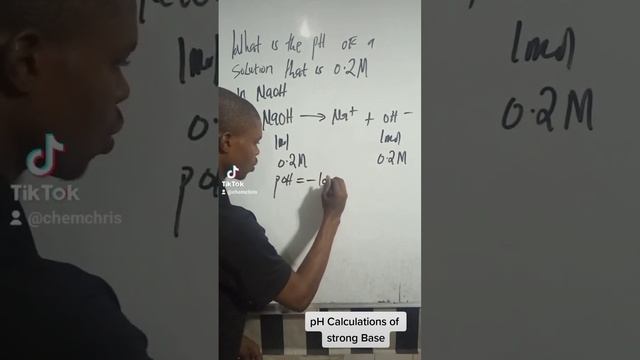 What is the pH of a
solution that is 0.2M
in NaOH
NaOH → Na+ + OH-
1mol 1mol
0.2M 0.2M
pOH = - lo
TikTok
@chemchris
pH Calculations of
strong Base
TikTok
@chemchris
1mol
0.2M